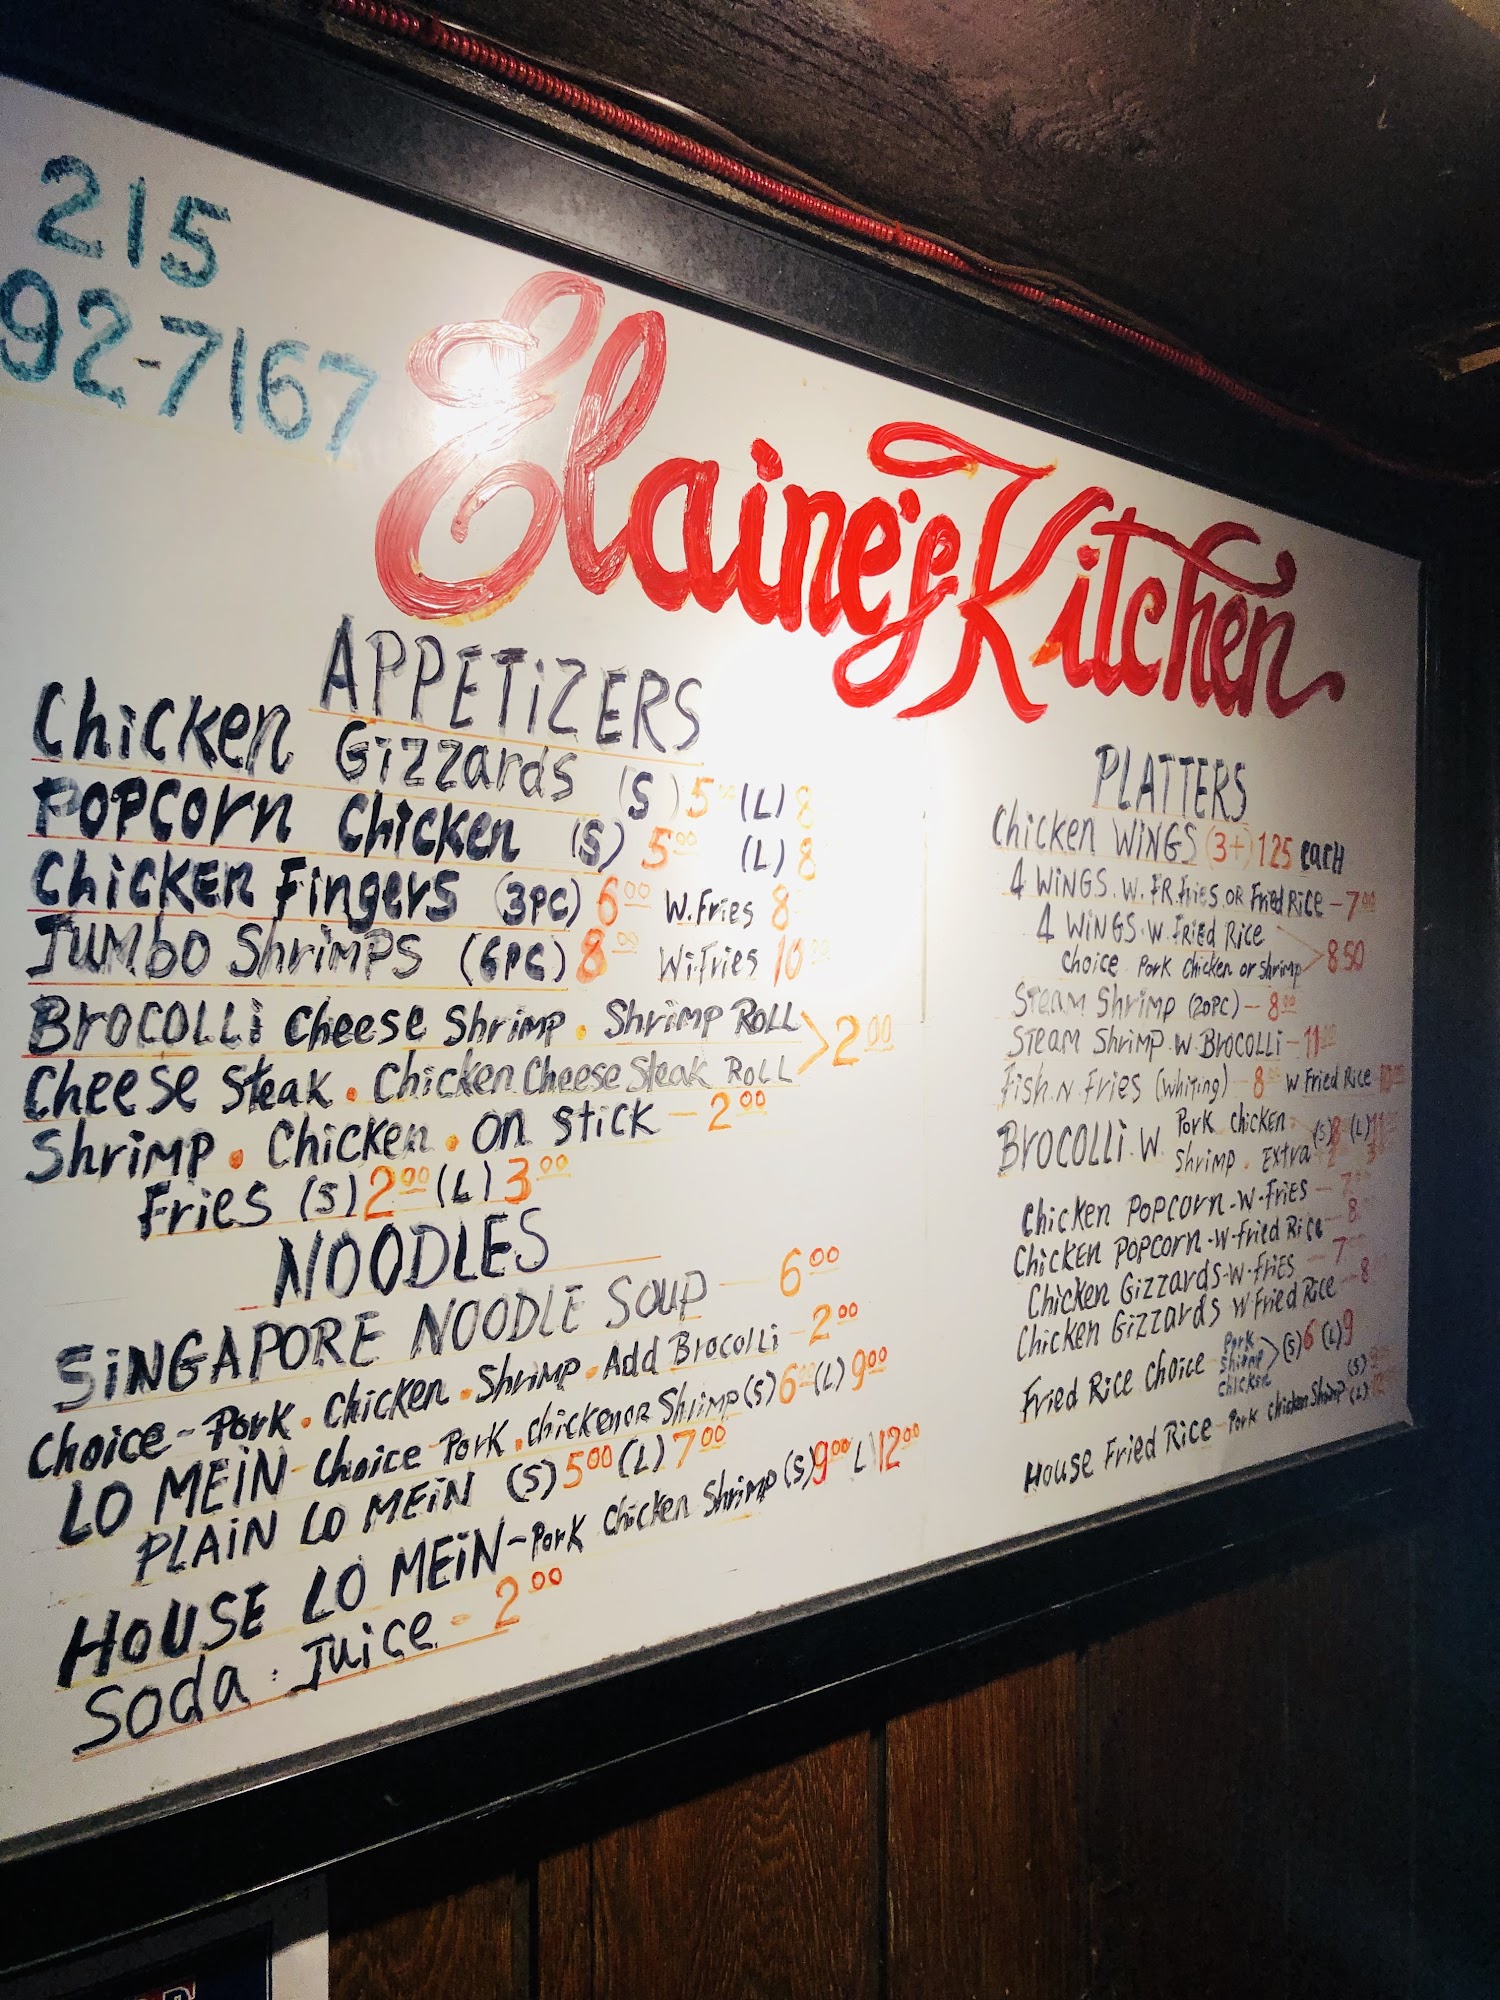 215
92-7167
Elaine's Kitchen
APPETIZERS
Chicken Gizzards (S) 5 (L) 8
POPCORN Chicken (S) 5.00 (L) 8
CHICKEN Fingers (3PC) 6.00 W. Fries 8
JUMBO ShriMPS (6PC) 8.00 Wi. Fries 10
BROCOLLi Cheese Shrimp . Shrimp ROLL
Cheese Steak . Chicken Cheese Steak ROLL > 2.00
Shrimp . Chicken . on stick - 2.00
Fries (S) 2.00 (L) 3.00
NOODLES
SiNGAPORE NOODLE SOUP - 6.00
Choice - Pork . Chicken . Shrimp . Add Brocolli - 2.00
LO MEiN - Choice Pork . Chicken or Shrimp (S) 6.00 (L) 9.00
PLAiN LO MEiN (S) 5.00 (L) 7.00
HOUSE LO MEiN - Pork Chicken Shrimp (S) 9.00 L 12.00
Soda . Juice - 2.00
PLATTERS
Chicken WiNGS (3+) 125 each
4 WiNGS. W. FR. Fries OR Fried Rice - 7.00
4 WiNGS. W. Fried Rice
choice Pork Chicken or Shrimp > 8.50
STEAM Shrimp (20PC) - 8.00
STEAM Shrimp. W. BROCOLLi - 11
Fish. N. Fries (Whiting) - 8 W Fried Rice 10
BROCOLLi. W. Pork Chicken
Shrimp . Extra (S) 8 (L) 11
Chicken POPCORN - W - Fries - 7
Chicken POPCORN - W - Fried Rice - 8
Chicken Gizzards - W - Fries - 7
Chicken Gizzards W Fried Rice - 8
Fried Rice Choice Pork Shrimp Chicken > (S) 6 (L) 9
House Fried Rice - Pork Chicken Shrimp (S) (L)